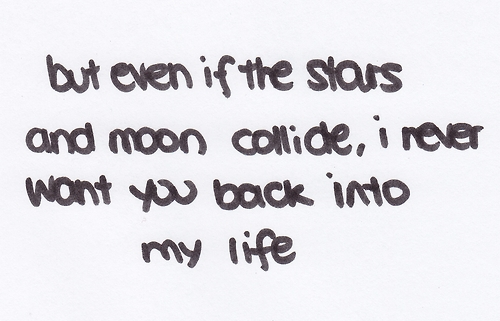 but even if the stars
and moon collide, i never
want you back into
my life